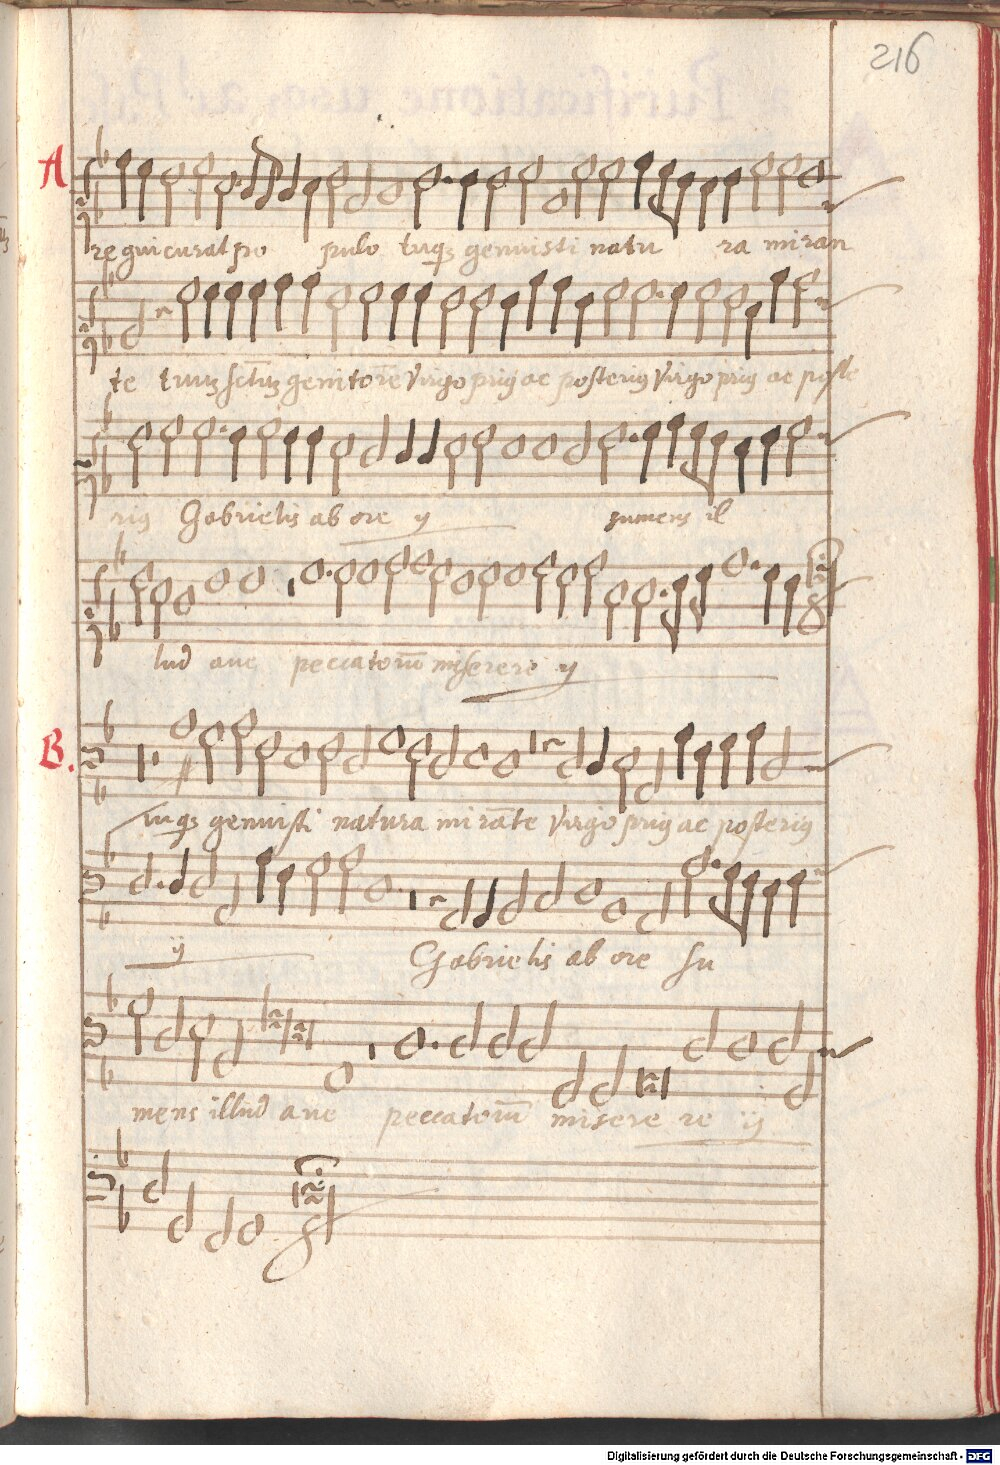 216
A
re qui curat po pulo tuq3 genuisti natu ra miran
te tuu3 sctu3 genitore Virgo prig ac posterig Virgo prig ac poste
rig Gabrielis ab ore ij sumens il
lud ave peccatoru miserere ij
B.
tuq3 genuisti natura mirate Virgo prig ac posterig
ij Gabrielis ab ore su
mens illud ave peccatoru misere re ij
Digitalisierung gefördert durch die Deutsche Forschungsgemeinschaft - DFG